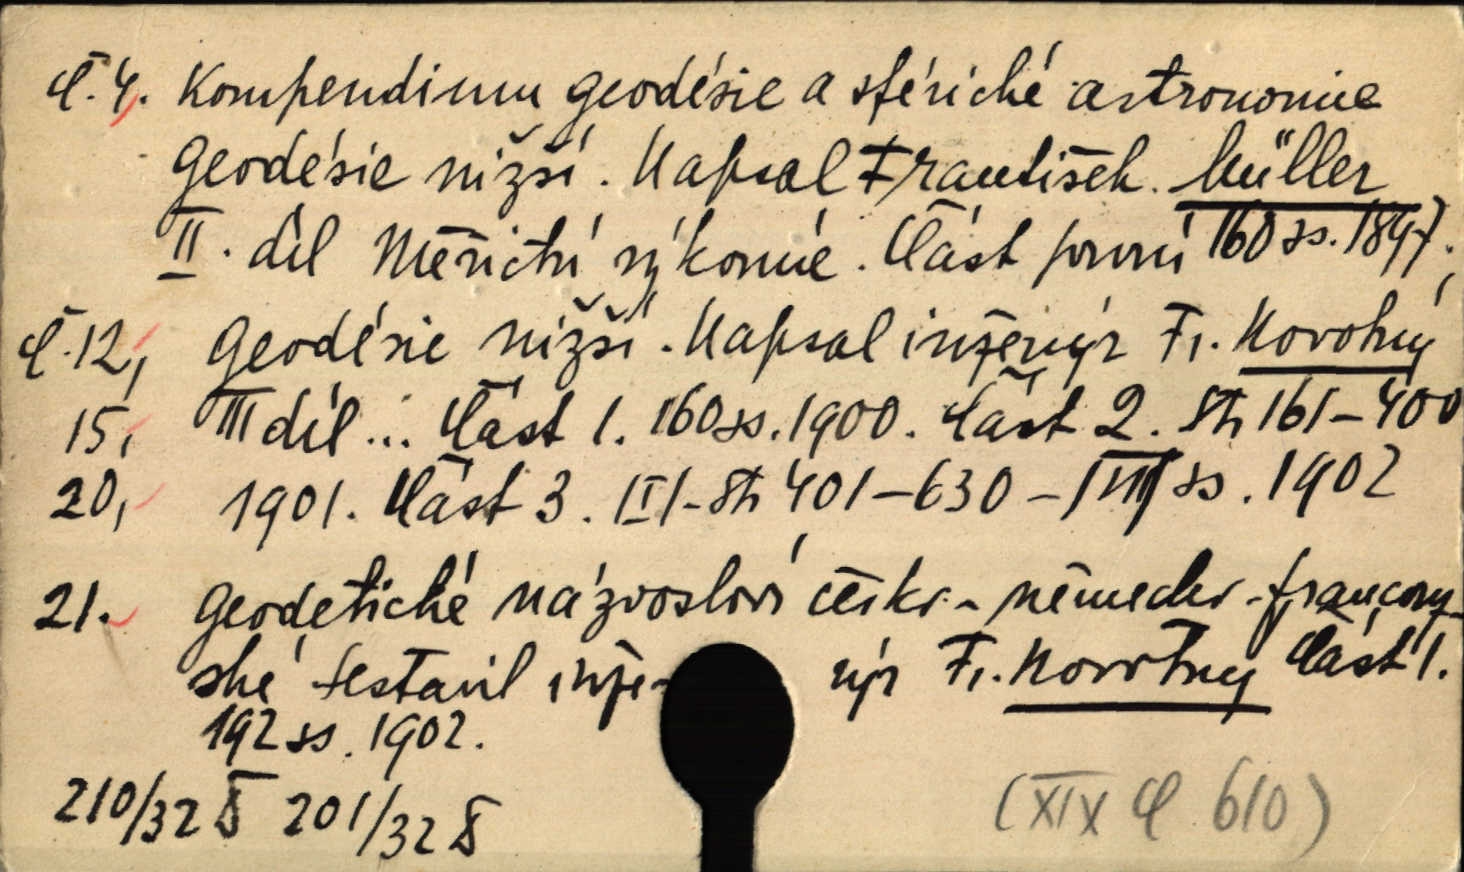 Č. 4. Kompendium geodésie a sférické astronomie
Geodésie nižší. Napsal František Müller
II. díl Měřictví výkonné. Část první 160 ss. 1897.;
Č. 12, Geodésie nižší. Napsal inženýr Fr. Novotný
15, III díl ... Část 1. 160 ss. 1900. Část 2. Str 161-400
20, 1901. Část 3. III - Str 401-630 - ss. 1902
21. Geodetické názvosloví česko - německo - francouz-
ské Sestavil inže- nýr Fr. Novotný Část 1.
192 ss. 1902.
210/32 Š 201/32 Š (XIX Č 610)